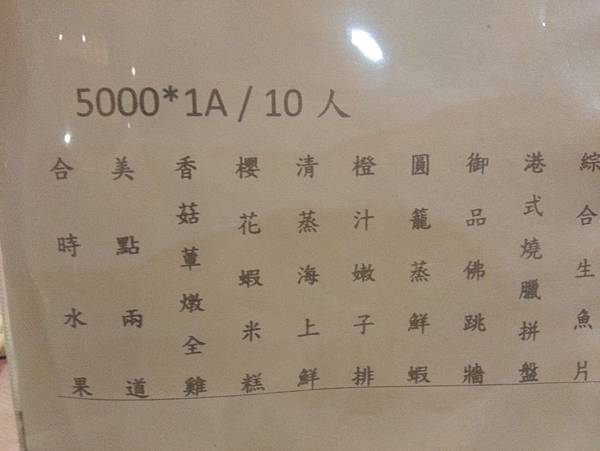 5000*1A / 10 人
綜合生魚片
港式燒臘拼盤
御品佛跳牆
圓籠蒸鮮蝦
橙汁嫩子排
清蒸海上鮮
櫻花蝦米糕
香菇蕈燉全雞
美點兩道
合時水果